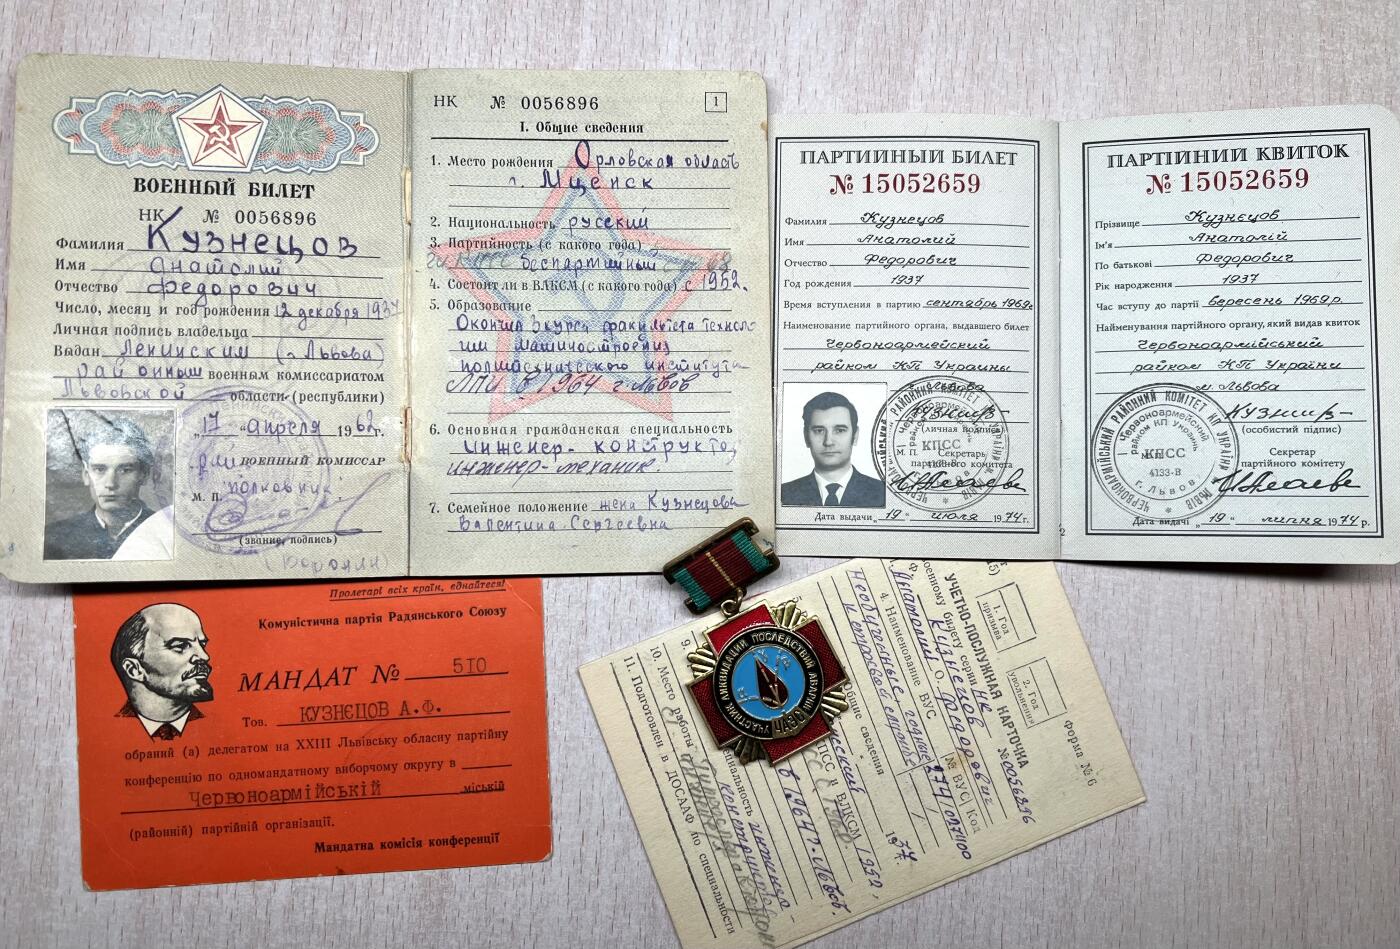 ВОЕННЫЙ БИЛЕТ
НК № 0056896
Фамилия Кузнецов
Имя Анатолий
Отчество Федорович
Число, месяц и год рождения 12 декабря 1937
Личная подпись владельца
Выдан Ленинским (г. Львова)
районным военным комиссариатом
Львовской области (республики)
„17 “ апреля 1962г.
рай ВОЕННЫЙ КОМИССАР
полковник
М. П.
(звание, подпись)
НК № 0056896
1
I. Общие сведения
1. Место рождения Орловская область
г. Мценск
2. Национальность русский
3. Партийность (с какого года)
беспартийный
4. Состоит ли в ВЛКСМ (с какого года) с 1952.
5. Образование
Окончил 3 курса факультета техноло-
гии машиностроения
политехнического института
ЛПИ в 1964 г. Львов
6. Основная гражданская специальность
инженер-конструктор
инженер-механик.
7. Семейное положение жена Кузнецова
Валентина Сергеевна
ПАРТИЙНЫЙ БИЛЕТ
№ 15052659
Фамилия Кузнецов
Имя Анатолий
Отчество Федорович
Год рождения 1937
Время вступления в партию сентябрь 1969г
Наименование партийного органа, выдавшего билет
Червоноармейский
райком КП Украины
г. Львова
(личная подпись)
М. П. Секретарь
партийного комитета
Дата выдачи „19 “ июля 1974 г.
ПАРТІЙНИЙ КВИТОК
№ 15052659
Прізвище Кузнєцов
Ім'я Анатолій
По батькові Федорович
Рік народження 1937
Час вступу до партії вересень 1969 р.
Найменування партійного органу, який видав квиток
Червоноармійський
райком КП України
м. Львова
(особистий підпис)
М.П. Секретар
партійного комітету
Дата видачі „19 “ липня 1974 р.
ЧЕРВОНОАРМІЙСЬКИЙ РАЙОННИЙ КОМІТЕТ КП УКРАЇНИ М. ЛЬВІВ
Червоноармейский
райком КП Украины
КПСС
4133-В
г. Львов
2
Пролетарі всіх країн, єднайтеся!
Комуністична партія Радянського Союзу
МАНДАТ № 510
Тов. КУЗНЄЦОВ А.Ф.
обраний (а) делегатом на XXIII Львівську обласну партійну
конференцію по одномандатному виборчому округу в
Червоноармійській міській
(районній) партійній організації.
Мандатна комісія конференції
УЧАСТНИК ЛИКВИДАЦИИ ПОСЛЕДСТВИЙ АВАРИИ
ЧАЭС
Форма № 6
1. Год призыва
2. Год увольнения
УЧЕТНО-ПОСЛУЖНАЯ КАРТОЧКА
к военному билету серии НК № 0056896
Кузнецов
Анатолий Федорович
4. Наименование ВУС
№ ВУС
Код
Необученные годные
к строевой службе
Общие сведения
русский
КПСС и ВЛКСМ 1952,
в 1964 г. Львов.
9.
специальность инженер-
конструктор
10. Место работы
11. Подготовлен в ДОСААФ по специальности